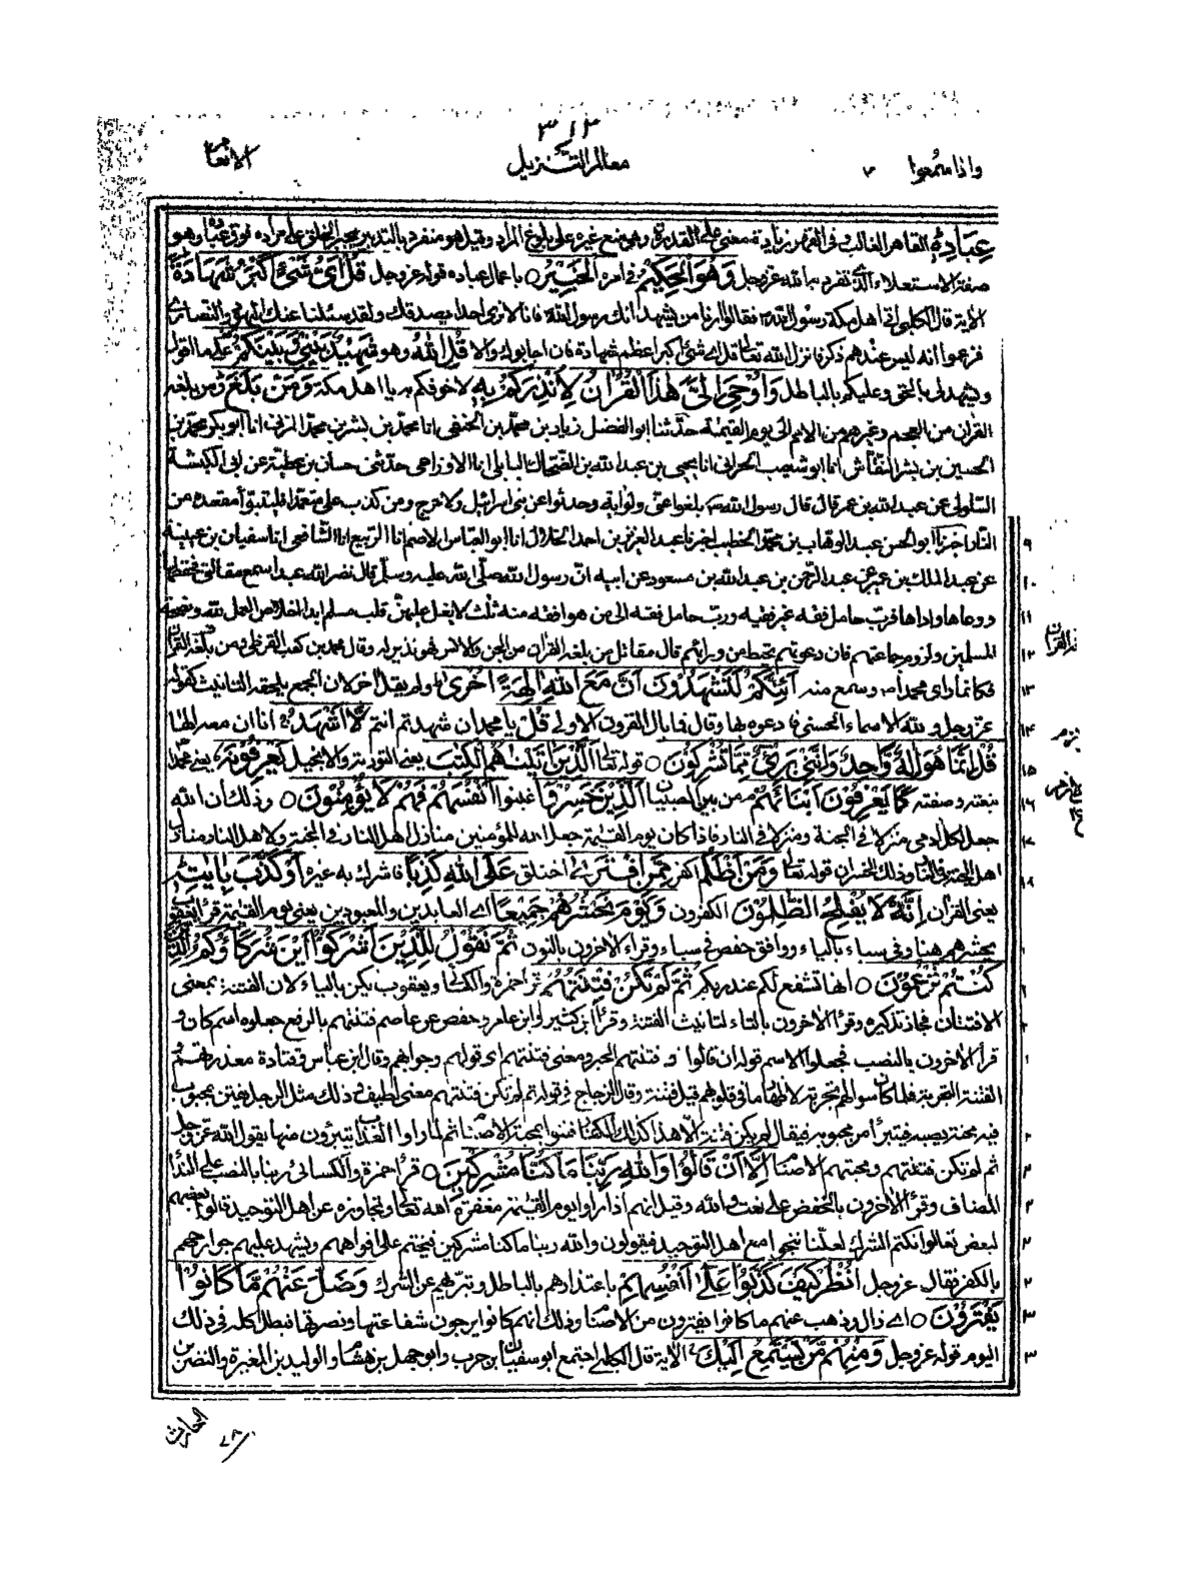 ٣١٣
واذا سمعوا ٧
معالم التنزيل
الانعام
عِبَادِهٖ القاهر الغالب وفى القهر زيادة معنى على القدرة وهو منع غيره على بلوغ المراد وقيل هو منفرد بالتدبير يجبر الخلق على مراده فوق عباده هو
صفة الاستعلاء الذى تفرد به الله عز وجل وَهُوَ الْحَكِيْمُ فى امره الْخَبِيْرُ ○ باعمال عباده قوله عز وجل قُلْ اَىُّ شَىْءٍ اَكْبَرُ شَهَادَةً
الاية قال الكلبى اتى اهل مكة رسول الله فقالوا ارنا من يشهد انك رسول الله فانا لا نرى احدا يصدقك ولقد سئلنا عنك اليهود والنصارى
فزعموا انه ليس عندهم ذكر فانزل الله تعالى قل اى شئ اكبر اعظم شهادة فان اجابوك والا قُلِ اللهُ وهو شَهِيْدٌ بَيْنِىْ وَبَيْنَكُمْ على ما اقول
ويشهد لى بالحق وعليكم بالباطل وَاُوْحِىَ اِلَىَّ هٰذَا الْقُرْاٰنُ لِاُنْذِرَكُمْ بِهٖ لاخوفكم به يا اهل مكة وَمَنْ بَلَغَ ومن بلغه
القران من العجم وغيرهم من الامم الى يوم القيمة حدثنا ابو الفضل زياد بن محمد بن الحنفى انا محمد بن بشر بن محمد المزنى انا ابو بكر محمد بن
الحسين بن بشر النقاش انا ابو شعيب الحرانى انا يحيى بن عبد الله بن الضحاك البابلى انا الاوزاعى حدثنى حسان بن عطية عن ابى الكبشة
السلولى عن عبد الله بن عمر قال قال رسول الله بلغوا عنى ولو اية وحدثوا عن بنى اسرائيل ولا حرج ومن كذب على متعمدا فليتبوأ مقعده من
النار اخبرنا ابو الحسن عبد الوهاب بن محمد الخطيب اخبرنا عبد العزيز بن احمد الخلال انا ابو العباس الاصم انا الربيع انا الشافعى انا سفيان بن عيينة
عن عبد الملك بن عمير عن عبد الرحمن بن عبد الله بن مسعود عن ابيه ان رسول الله صلى الله عليه وسلم قال نضر الله عبدا سمع مقالتى فحفظها
ووعاها واداها فرب حامل فقه غير فقيه ورب حامل فقه الى من هو افقه منه ثلث لا يغل عليهن قلب مسلم ابدا اخلاص العمل لله ونصيحة
المسلمين ولزوم جماعتهم فان دعوتهم تحيط من ورائهم قال مقاتل من بلغه القران من الجن والانس فهو نذير له وقال محمد بن كعب القرظى من بلغه القران
فكانما راى محمدا وسمع منه اَئِنَّكُمْ لَتَشْهَدُوْنَ اَنَّ مَعَ اللهِ اٰلِهَةً اُخْرٰى ولم يقل اخر لان الجمع يلحقه التانيث كقوله
عز وجل ولله الاسماء الحسنى فادعوه بها وقال فما بال القرون الاولى قُلْ يا محمد ان شهدتم انتم لَّا اَشْهَدُ انا ان معه الها
قُلْ اِنَّمَا هُوَ اِلٰهٌ وَّاحِدٌ وَّاِنَّنِىْ بَرِىْءٌ مِّمَّا تُشْرِكُوْنَ ○ قوله تعالى اَلَّذِيْنَ اٰتَيْنٰهُمُ الْكِتٰبَ يعنى التورىة والانجيل يَعْرِفُوْنَهٗ يعنى محمدا
بنعته وصفته كَمَا يَعْرِفُوْنَ اَبْنَآءَهُمْ من بين الصبيان اَلَّذِيْنَ خَسِرُوْا غبنوا اَنْفُسَهُمْ فَهُمْ لَا يُؤْمِنُوْنَ ○ وذلك ان الله
جعل لكل ادمى منزلا فى الجنة ومنزلا فى النار فاذا كان يوم القيمة جعل الله للمؤمنين منازل اهل النار فى الجنة ولاهل النار منازل
اهل الجنة فى النار وذلك الخسران قوله تعالى وَمَنْ اَظْلَمُ اكفر مِمَّنِ افْتَرٰى اختلق عَلَى اللهِ كَذِبًا فاشرك به غيره اَوْ كَذَّبَ بِاٰيٰتِهٖ
يعنى القران اِنَّهٗ لَا يُفْلِحُ الظّٰلِمُوْنَ الكفرون وَيَوْمَ نَحْشُرُهُمْ جَمِيْعًا اى العابدين والمعبودين يعنى يوم القيمة قرأ يعقوب
يحشرهم هنا وفى سباء بالياء ووافق حفص فى سباء وقرأ الاخرون بالنون ثُمَّ نَقُوْلُ لِلَّذِيْنَ اَشْرَكُوْا اَيْنَ شُرَكَاؤُكُمُ الَّذِيْنَ
كُنْتُمْ تَزْعُمُوْنَ ○ انها تشفع لكم عند ربكم ثُمَّ لَمْ تَكُنْ فِتْنَتُهُمْ قرأ حمزة والكسائى ويعقوب يكن بالياء لان الفتنة بمعنى
الافتتان فجاز تذكيره وقرأ الاخرون بالتاء لتانيث الفتنة وقرأ ابن كثير وابن عامر وحفص عن عاصم فتنتهم بالرفع جعلوه اسم كان و
قرأ الاخرون بالنصب فجعلوا الاسم قوله ان قالوا و فتنتهم الخبر ومعنى فتنتهم اى قولهم وجوابهم وقال ابن عباس وقتادة معذرتهم
الفتنة التجربة فلما كان سوالهم تجربة لاظهار ما فى قلوبهم قيل فتنة وقال الزجاج فى قوله ثم لم تكن فتنتهم معنى لطيف وذلك مثل الرجل يفتتن بمحبوب
ثم يصيبه فيه محنة فيتبرأ من محبوبه فيقال لم يكن فتنته الا هذا كذلك الكفار فتنوا بمحبة الاصنام ثم لما راوا العذاب يتبرؤن منها يقول الله عز وجل
ثم لم تكن فتنتهم ومحبتهم الاصنام اِلَّا اَنْ قَالُوْا وَاللهِ رَبِّنَا مَا كُنَّا مُشْرِكِيْنَ ○ قرأ حمزة والكسائى ربنا بالنصب على النداء
المضاف وقرأ الاخرون بالخفض على نعت والله وقيل انهم اذا راوا يوم القيمة مغفرة الله تعالى وتجاوزه عن اهل التوحيد قالوا بعضهم
لبعض تعالوا نكتم الشرك لعلنا ننجوا مع اهل التوحيد فيقولون والله ربنا ما كنا مشركين فيختم على افواههم ويشهد عليهم جوارحهم
بالكفر فقال عز وجل اُنْظُرْ كَيْفَ كَذَبُوْا عَلٰى اَنْفُسِهِمْ باعتذارهم بالباطل وتبريهم عن الشرك وَضَلَّ عَنْهُمْ مَّا كَانُوْا
يَفْتَرُوْنَ ○ اى زال وذهب عنهم ما كانوا يفترون من الاصنام وذلك انهم كانوا يرجون شفاعتها ونصرتها فبطل كله فى ذلك
اليوم قوله عز وجل وَمِنْهُمْ مَّنْ يَّسْتَمِعُ اِلَيْكَ الاية قال الكلبى اجتمع ابو سفيان بن حرب وابو جهل بن هشام والوليد بن المغيرة والنضر بن
الحارث